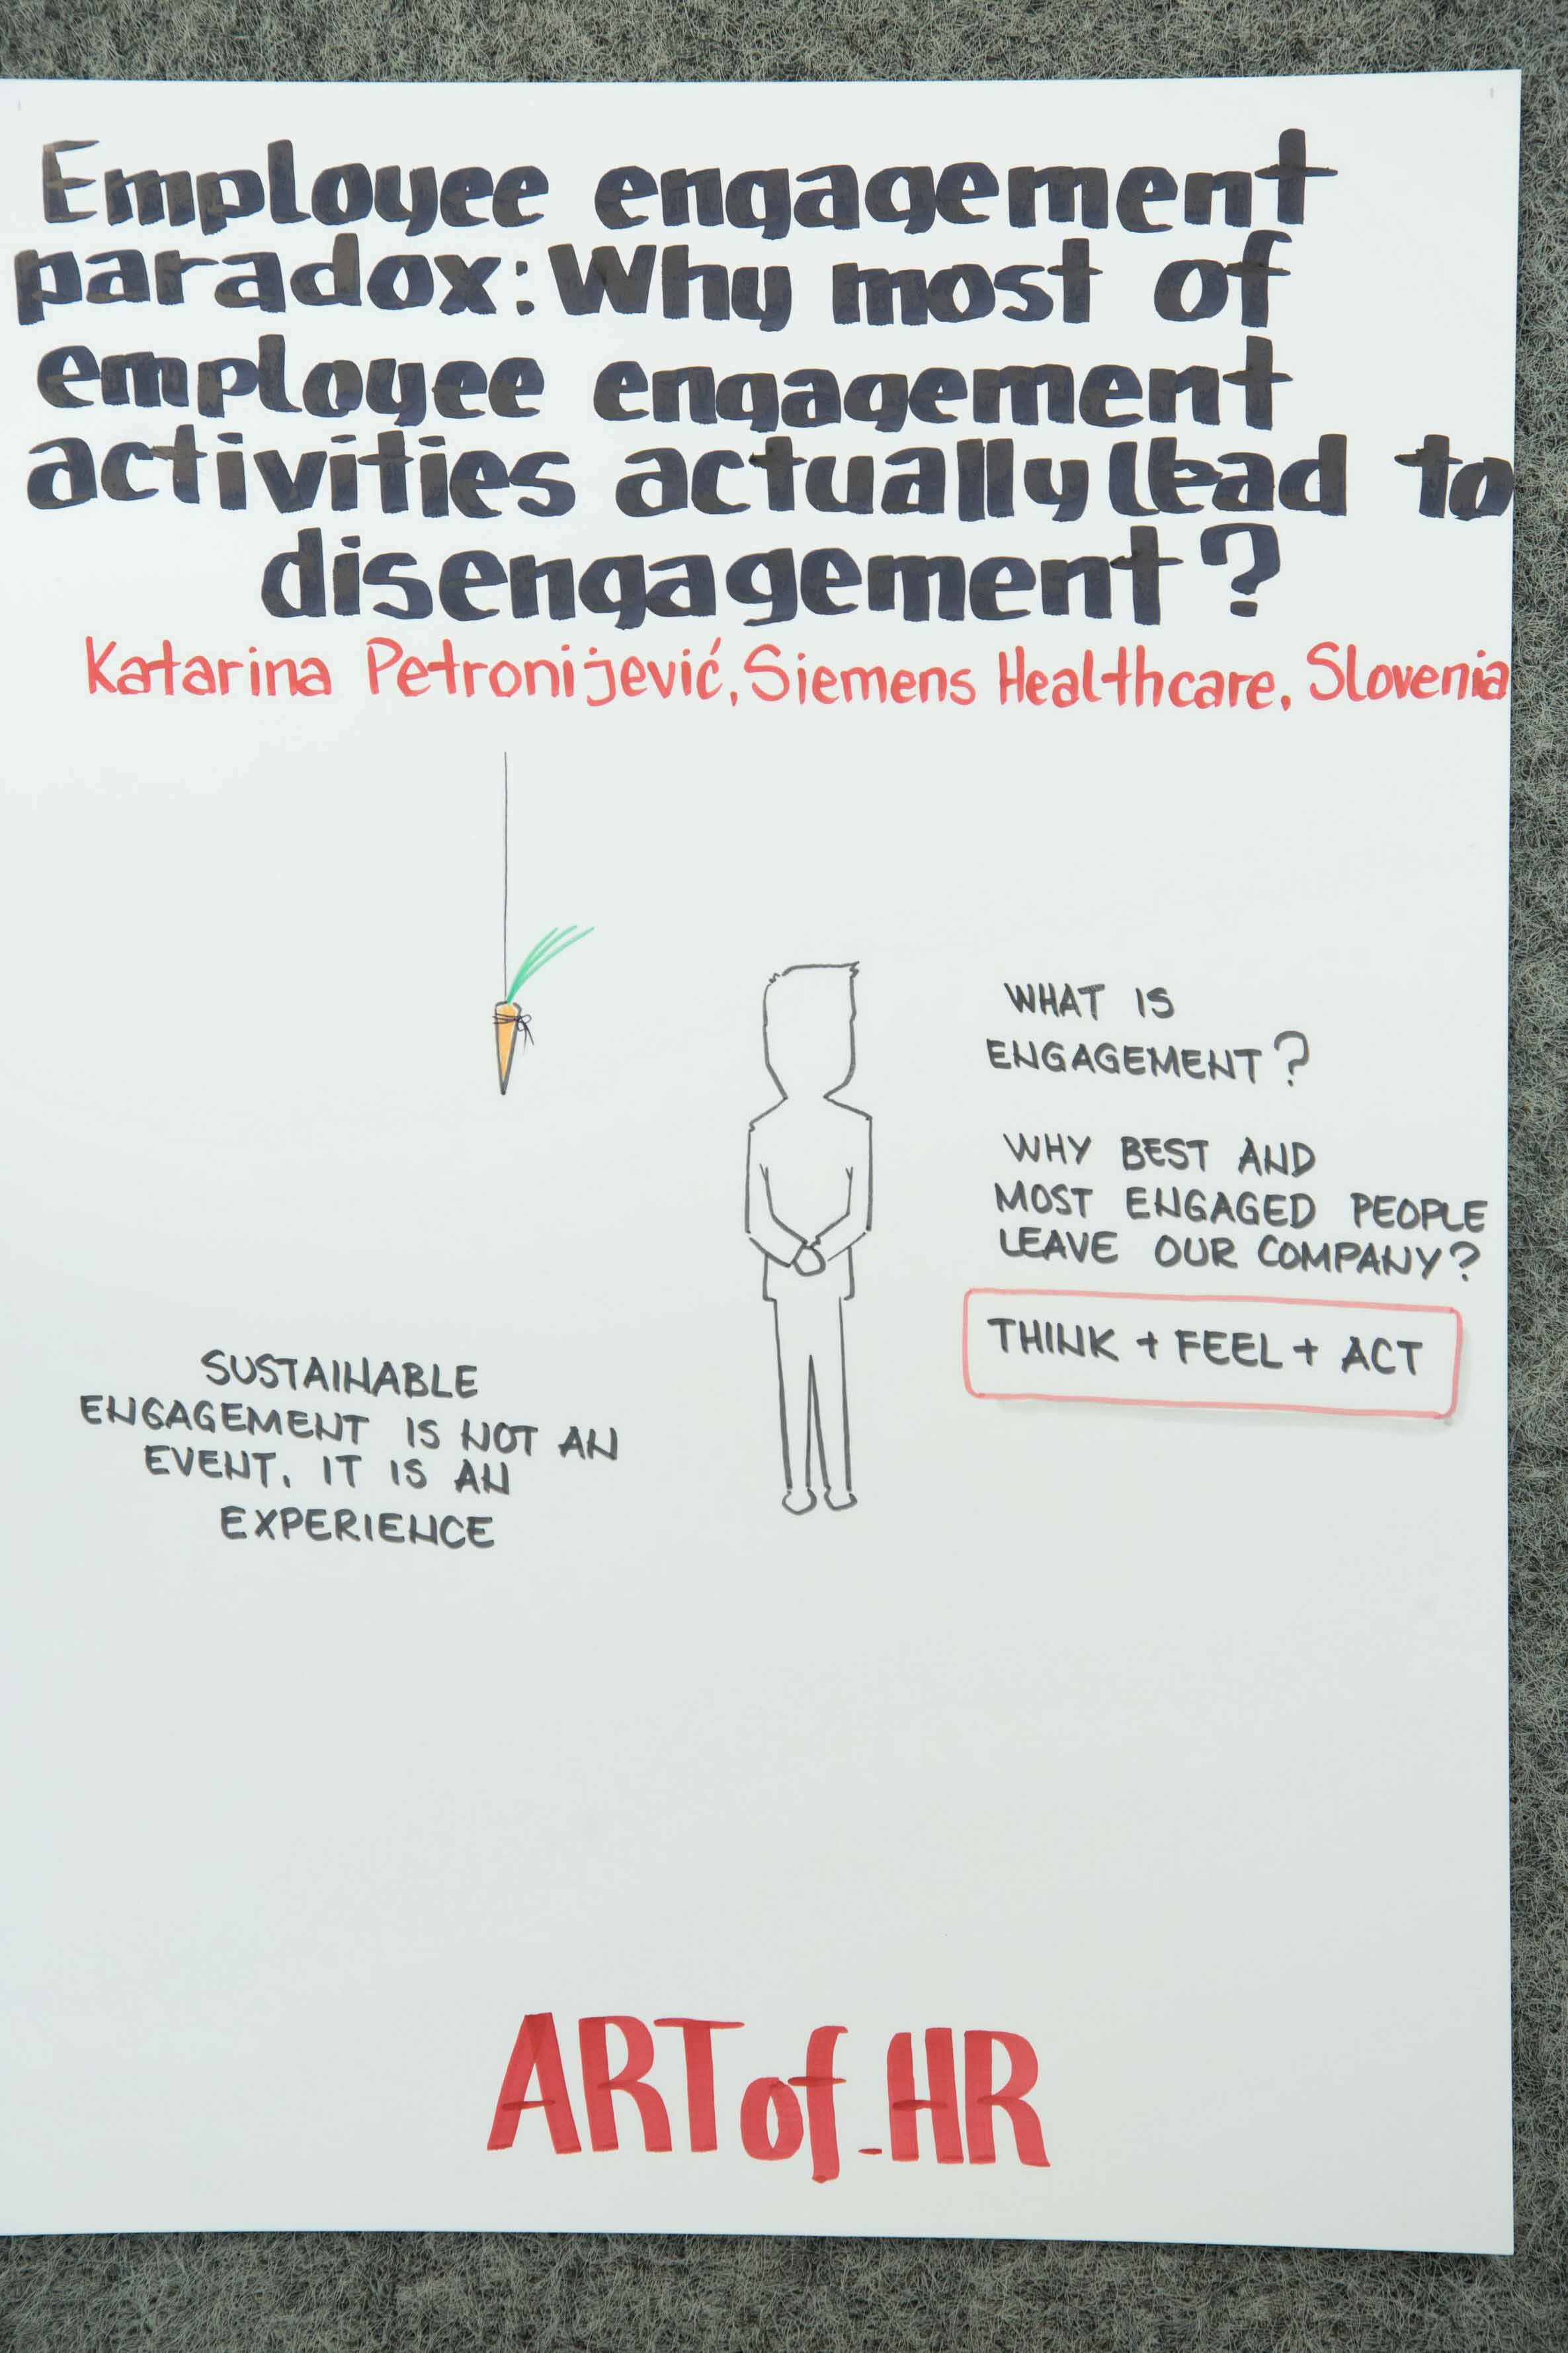 Employee engagement
paradox: Why most of
employee engagement
activities actually lead to
disengagement?
Katarina Petronijević, Siemens Healthcare, Slovenia
WHAT IS
ENGAGEMENT?
WHY BEST AND
MOST ENGAGED PEOPLE
LEAVE OUR COMPANY?
THINK + FEEL + ACT
SUSTAINABLE
ENGAGEMENT IS NOT AN
EVENT. IT IS AN
EXPERIENCE
ART of_HR